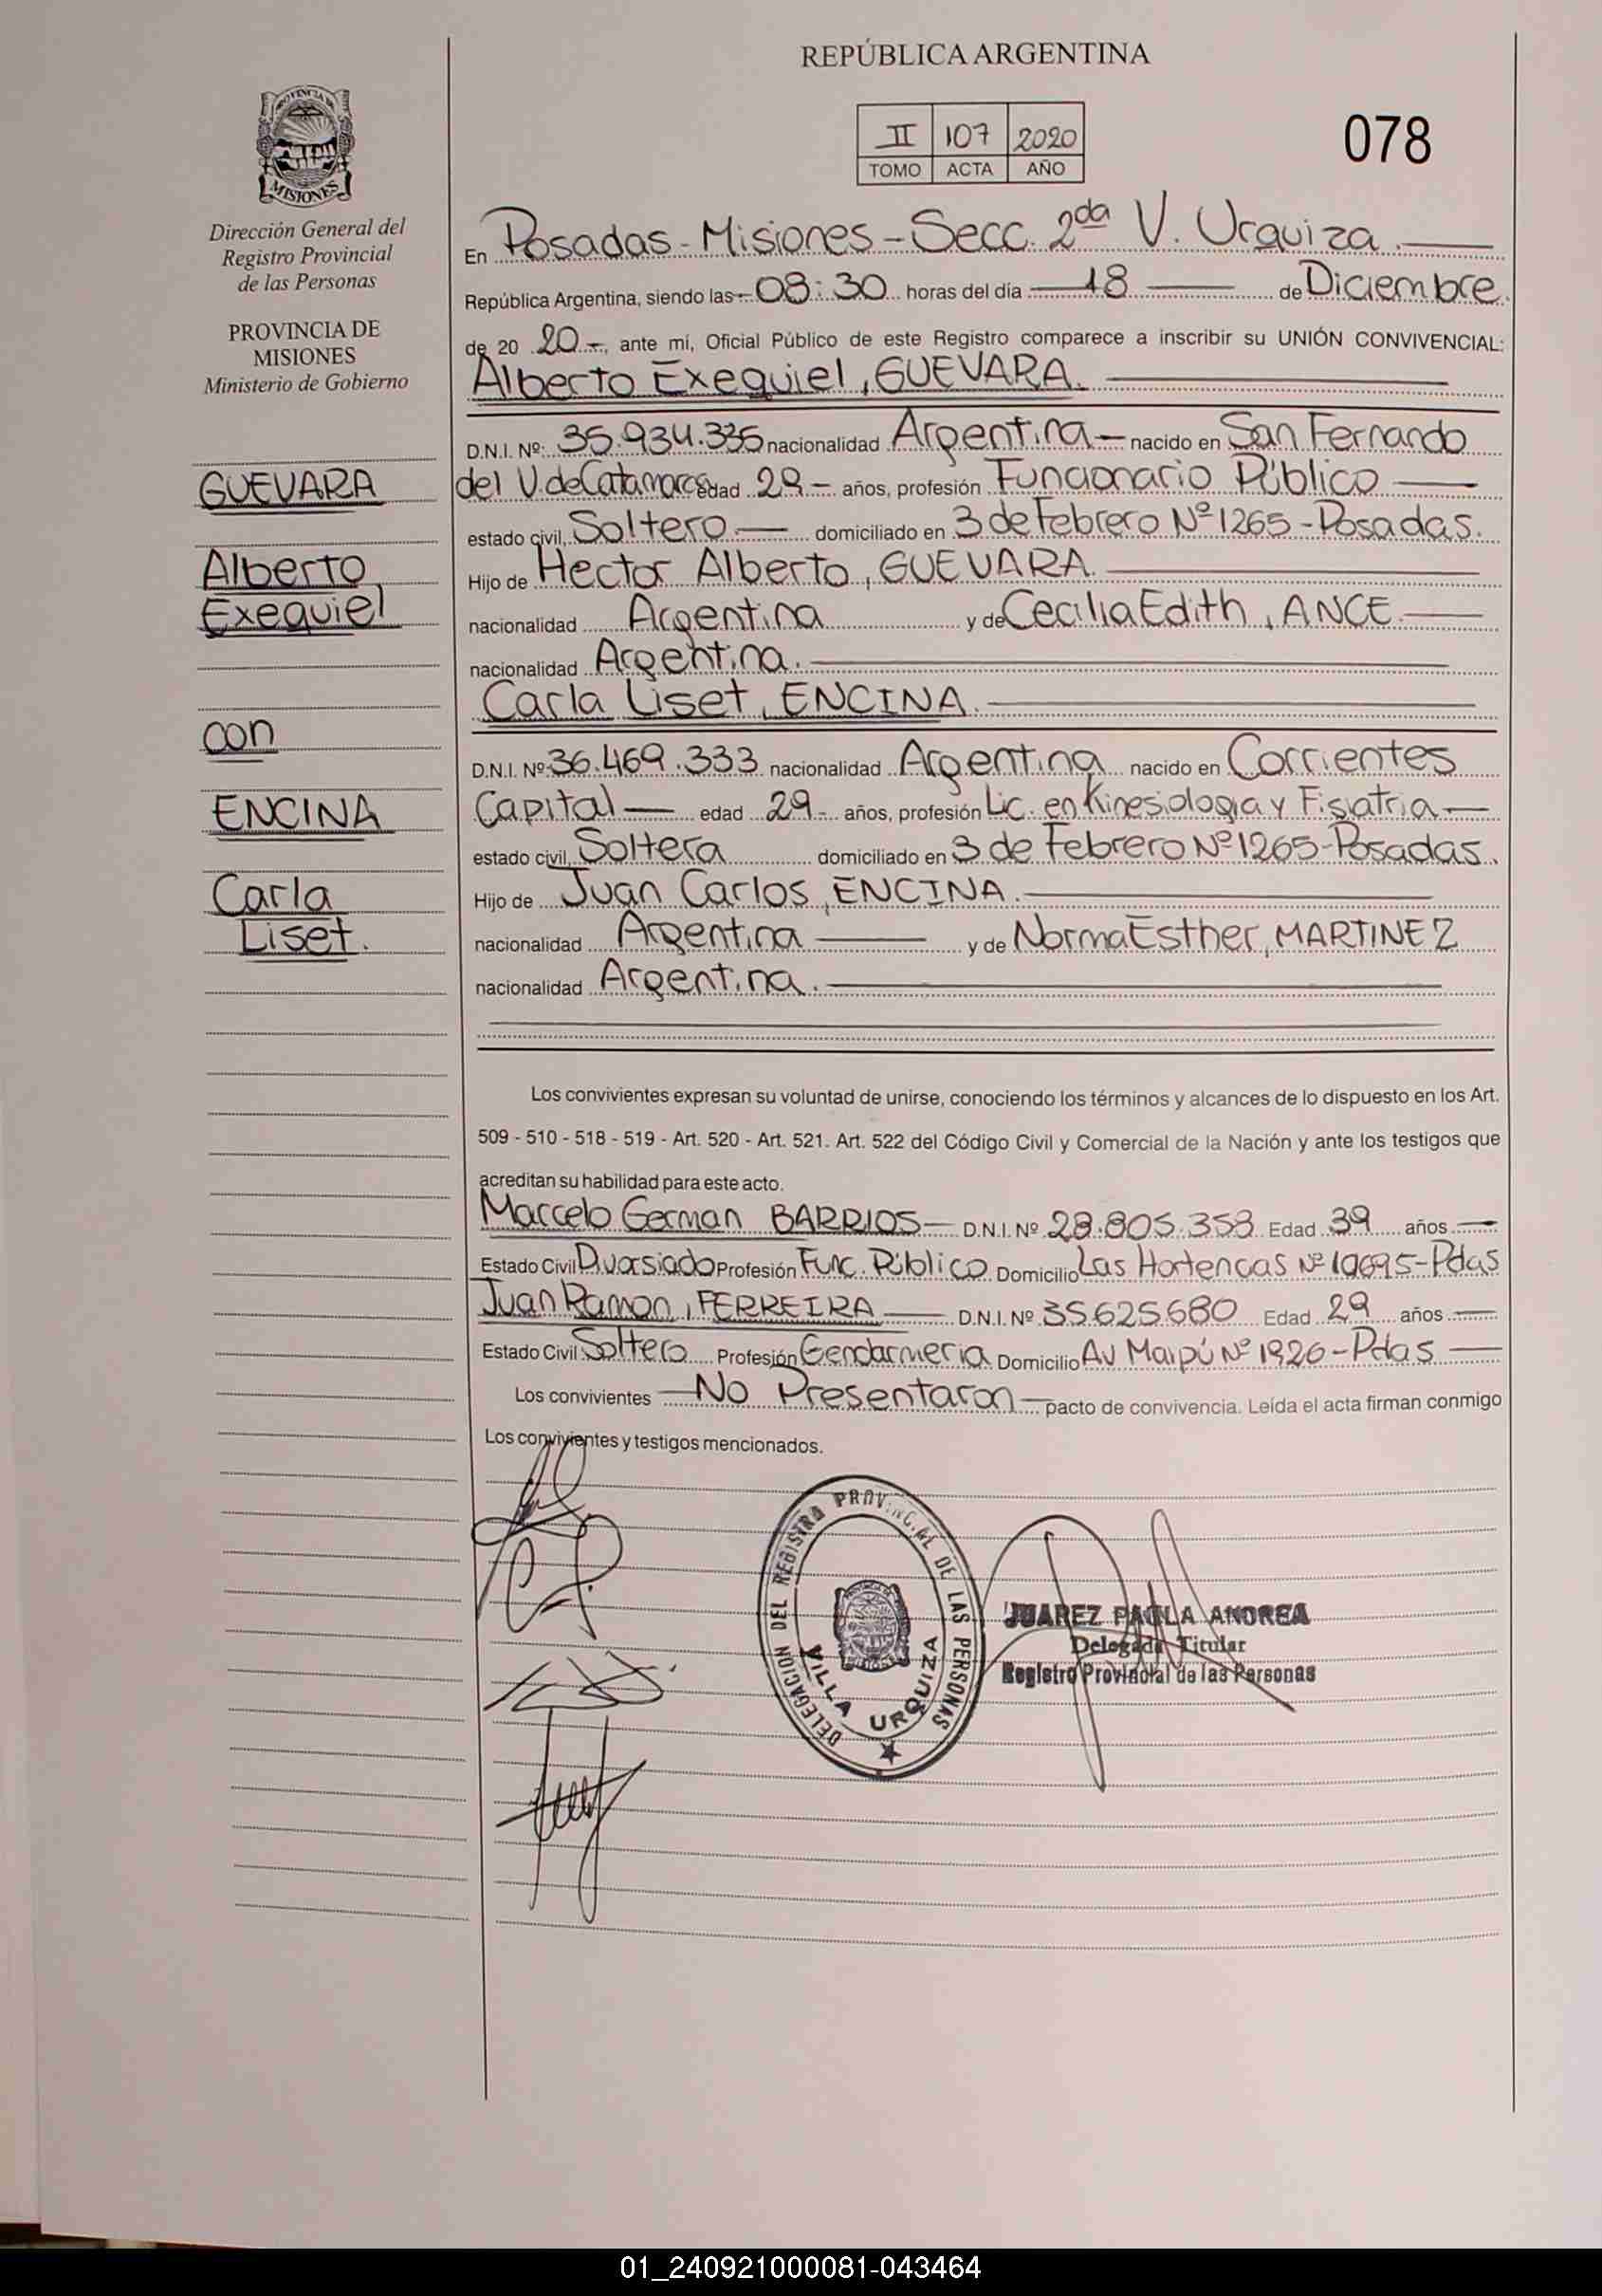 REPÚBLICA ARGENTINA
II 107 2020
TOMO ACTA AÑO
078
PROVINCIA DE
MISIONES
Dirección General del
Registro Provincial
de las Personas
PROVINCIA DE
MISIONES
Ministerio de Gobierno
GUEVARA
Alberto
Exequiel
con
ENCINA
Carla
Liset.
En Posadas - Misiones - Secc. 2da V. Urquiza.
República Argentina, siendo las 08:30 horas del día 18 de Diciembre.
de 20 20-, ante mí, Oficial Público de este Registro comparece a inscribir su UNIÓN CONVIVENCIAL:
Alberto Exequiel, GUEVARA.
D.N.I. Nº: 35.934.335 nacionalidad Argentina - nacido en San Fernando
del V. de Catamarca edad 29 - años, profesión Funcionario Público
estado civil, Soltero domiciliado en 3 de Febrero Nº 1265 - Posadas.
Hijo de Hector Alberto, GUEVARA.
nacionalidad Argentina y de Cecilia Edith, ANCE.
nacionalidad Argentina.
Carla Liset, ENCINA.
D.N.I. Nº: 36.469.333 nacionalidad Argentina nacido en Corrientes
Capital edad 29 - años, profesión Lic. en Kinesiologia y Fisiatria
estado civil, Soltera domiciliado en 3 de Febrero Nº 1265-Posadas.
Hijo de Juan Carlos, ENCINA.
nacionalidad Argentina y de Norma Esther, MARTINEZ
nacionalidad Argentina.
Los convivientes expresan su voluntad de unirse, conociendo los términos y alcances de lo dispuesto en los Art.
509 - 510 - 518 - 519 - Art. 520 - Art. 521. Art. 522 del Código Civil y Comercial de la Nación y ante los testigos que
acreditan su habilidad para este acto.
Marcelo German BARRIOS - D.N.I. Nº 28.805.358 Edad 39 años
Estado Civil Divorsiado Profesión Func. Público Domicilio Las Hortencas Nº 10695-Pdas
Juan Ramon, FERREIRA D.N.I. Nº 35.625.680 Edad 29 años
Estado Civil Soltero Profesión Gendarmeria Domicilio Av Maipú Nº 1926 - Pdas
Los convivientes No Presentaron pacto de convivencia. Leída el acta firman conmigo
Los convivientes y testigos mencionados.
DELEGACION DEL REGISTRO PROVINCIAL DE LAS PERSONAS
VILLA URQUIZA
JUAREZ PAOLA ANDREA
Delegada Titular
Registro Provincial de las Personas
01_240921000081-043464